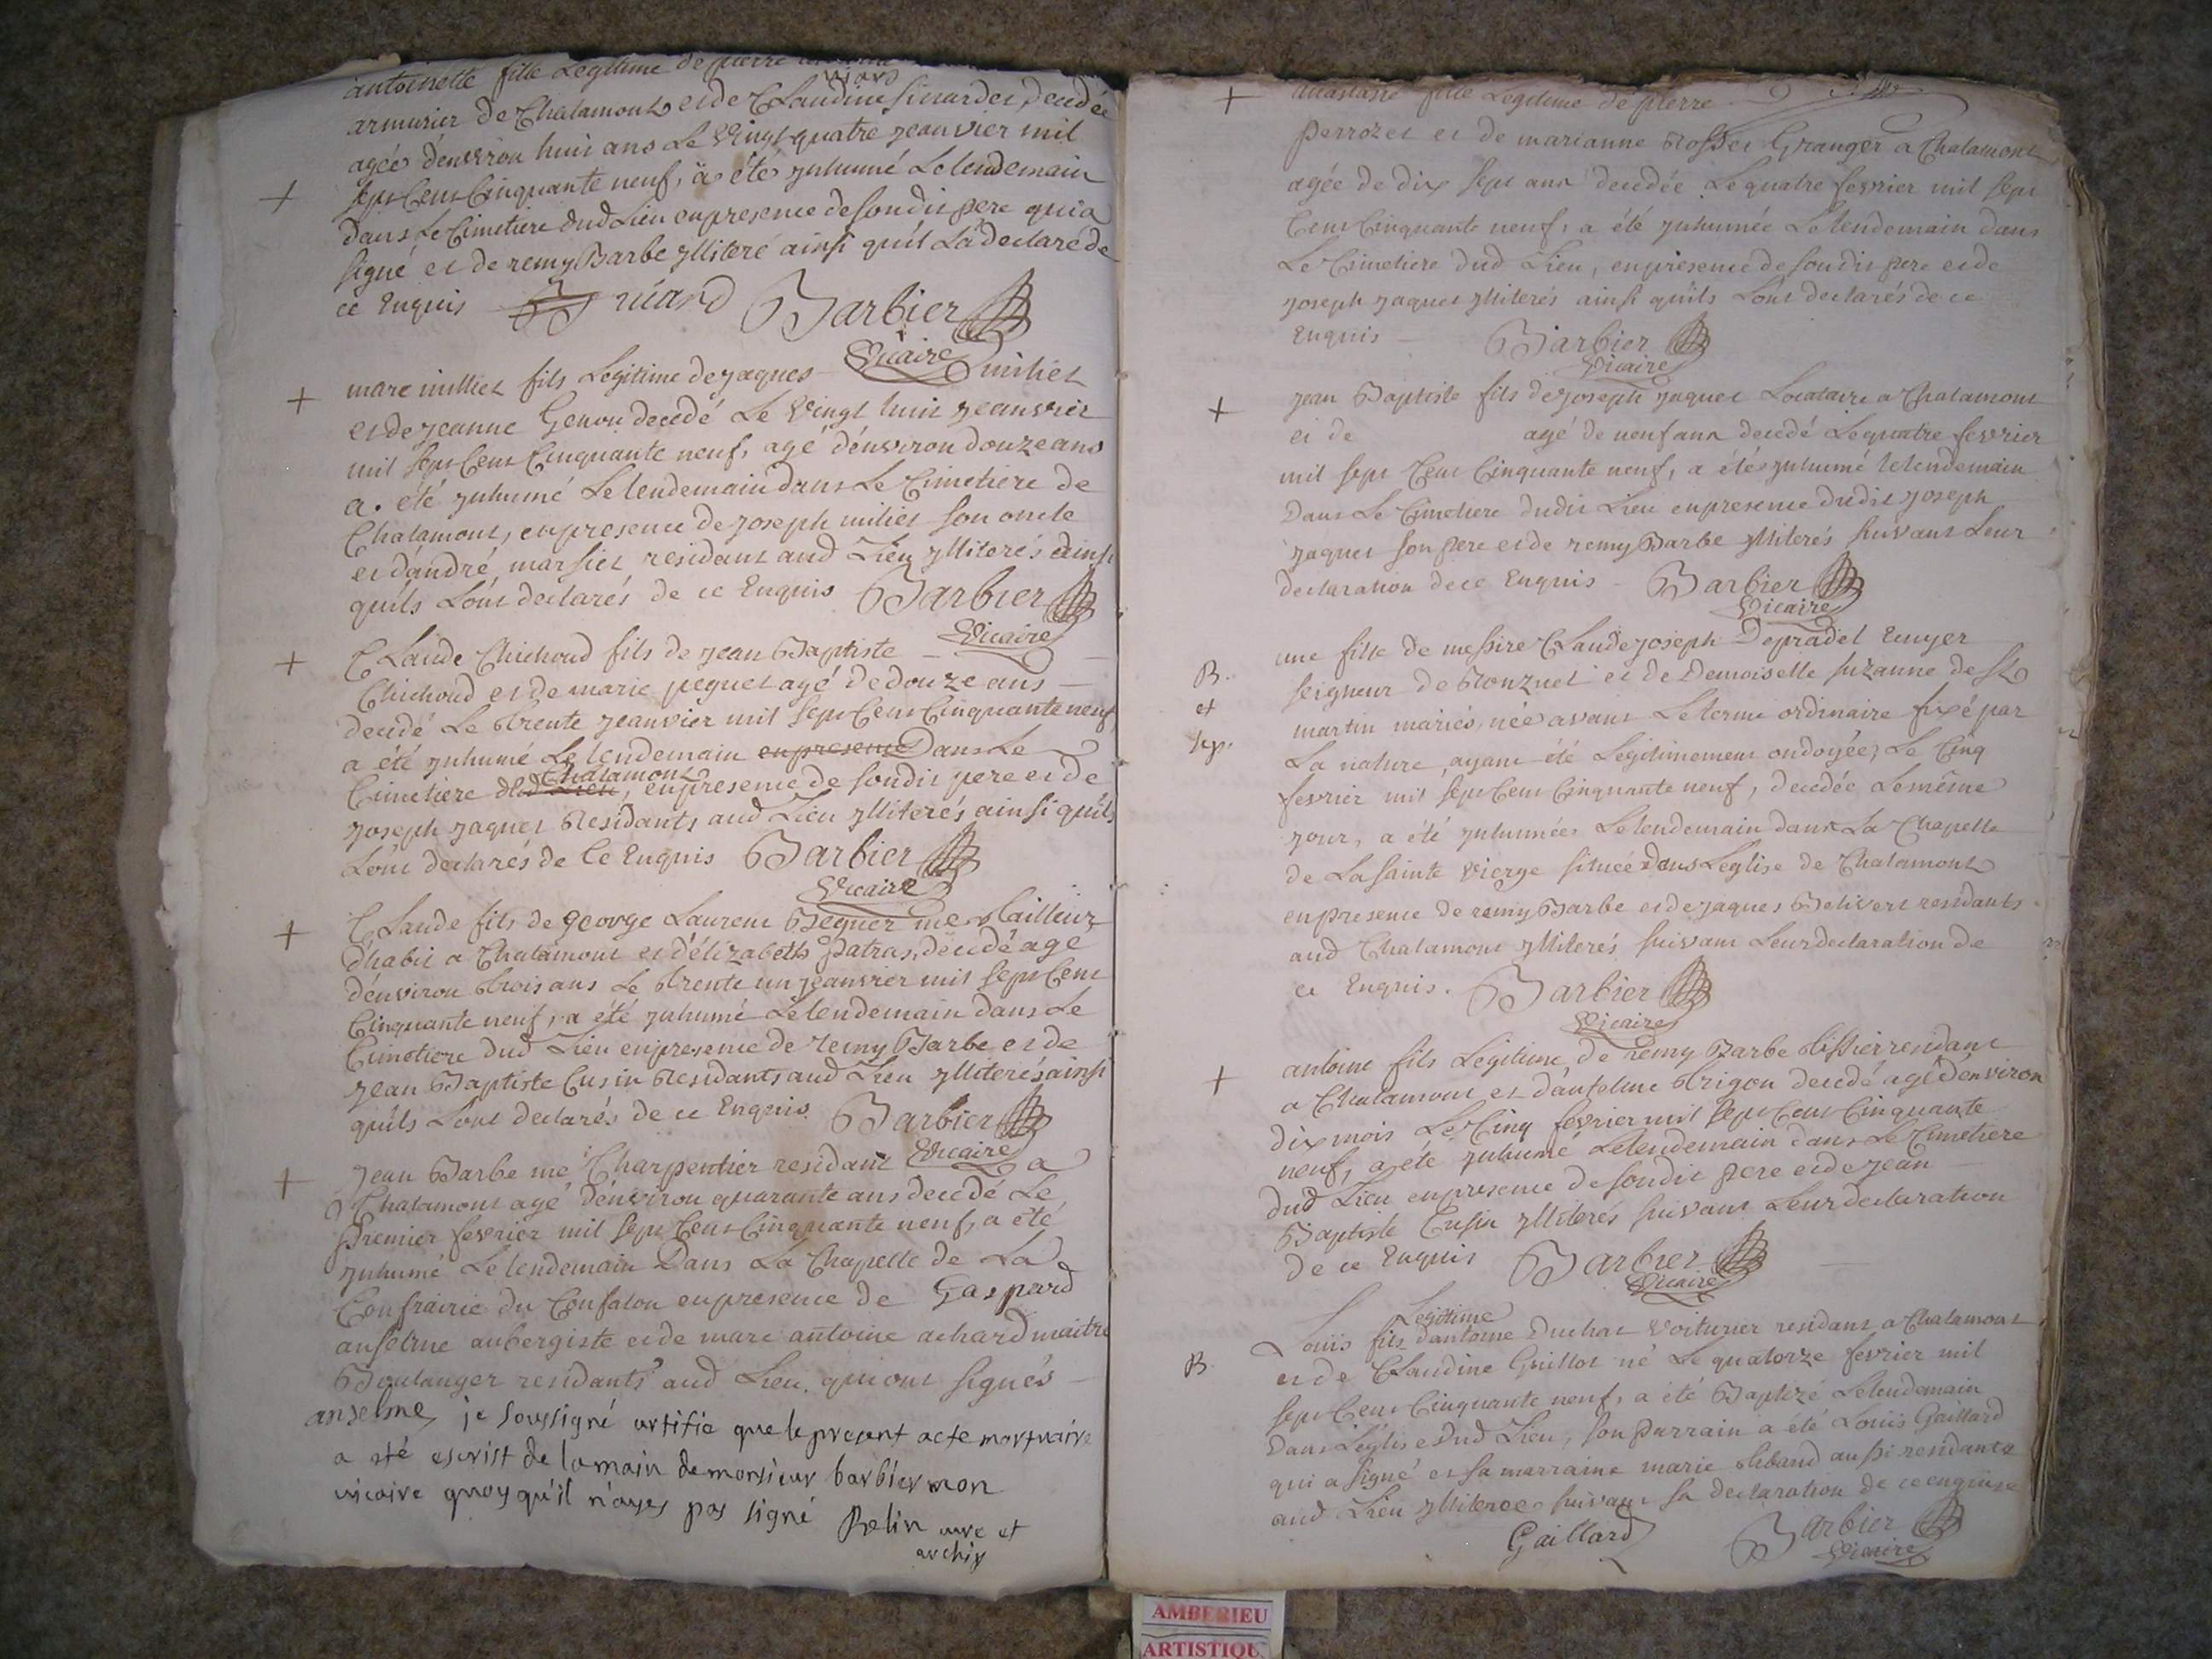 antoinette fille Legitime de pierre
viard
armurier de Chalamont et de Claudine decedée
agée d'environ huit ans Le Vingt quatre jeanvier mil
sept Cent Cinquante neuf, a été jnhumé Le lendemain
dans Le Cimetiere dud Lieu en presence de son dit pere qui a
signé et de remy Barbe jlliteré ainsi qu'il La declaré de
ce Enquis viard Barbier
Vicaire
marc milliet fils Legitime de jaques miliet
et de jeanne Genou decedé Le Vingt huit jeanvier
mil sept Cent Cinquante neuf, agé d'environ douze ans
a été jnhumé Le lendemain dans Le Cimetiere de
Chalamont, en presence de joseph miliet son oncle
et d'andré marsiet residant aud Lieu jlliterés ainsi
qu'ils Lont declarés de ce Enquis Barbier
Vicaire
Claude Chichoud fils de jean Baptiste
Chichoud et de marie peguet agé de douze ans
decedé Le trente jeanvier mil sept Cent Cinquante neuf
a été jnhumé Le lendemain en presence Dans Le
Chalamont
Cimetiere dud Lieu, en presence de son dit pere et de
joseph jaquet Residants aud Lieu jlliterés ainsi qu'ils
Lont declarés de Ce Enquis Barbier
Vicaire
Claude fils de george Laurent Beguer me tailleur
d'habit a Chalamont et d'élizabeth patras, decedé agé
d'environ trois ans Le trente un jeanvier mil sept Cent
Cinquante neuf, a été jnhumé Le lendemain dans Le
Cimetiere dud Lieu en presence de remy Barbe et de
jean Baptiste Cusin Residants aud Lieu jlliterés ainsi
qu'ils Lont declarés de ce Enquis Barbier
Vicaire
jean Barbe me Charpentier residant a
Chalamont agé d'environ quarante ans decedé Le
premier fevrier mil sept Cent Cinquante neuf, a été
jnhumé Le lendemain Dans La Chapelle de La
Confrairie du Confalon en presence de Gaspard
anselme aubergiste et de marc antoine achard maitre
Boulanger residants aud Lieu qui ont signés
anselme je soussigné certifie que le present acte mortuaire
a eté escrist de la main de monsieur barbier mon
vicaire quoy qu'il n'ayes pas signé Belin curé et
archip
anastasie fille Legitime de pierre
perrozet et de marianne Rosset Granger a Chalamont
agée de dix sept ans decedée Le quatre fevrier mil sept
Cent Cinquante neuf, a été jnhumée Le lendemain dans
Le Cimetiere dud Lieu, en presence de son dit pere et de
joseph jaquet jlliterés ainsi qu'ils Lont declarés de ce
Enquis Barbier
Vicaire
jean Baptiste fils de joseph jaquet Locataire a Chalamont
et de agé de neuf ans decedé Le quatre fevrier
mil sept Cent Cinquante neuf, a été jnhumé le lendemain
Dans Le Cimetiere dudit Lieu en presence dudit joseph
jaquet son pere et de remy Barbe jlliterés suivant Leur
declaration de ce Enquis Barbier
Vicaire
B.
et
Sep.
une fille de messire Claude joseph Depradel Ecuyer
seigneur de et de Demoiselle Suzanne de St
martin mariés, née avant Le terme ordinaire fixé par
La nature, ayant été Legitimement ondoyée, Le Cinq
fevrier mil sept Cent Cinquante neuf, decedée Le même
jour, a été jnhumée Le lendemain dans La Chapelle
de La Sainte Vierge située dans Leglise de Chalamont
en presence de remy Barbe et de jaques Belivert residants
aud Chalamont jlliterés suivant Leur declaration de
ce Enquis. Barbier
Vicaire
antoine fils Legitime de remy Barbe tissier residant
a Chalamont et d'antelme trigon decedé agé d'environ
dix mois Le Cinq fevrier mil sept Cent Cinquante
neuf, a été jnhumé Le lendemain dans Le Cimetiere
dud Lieu en presence de son dit pere et de jean
Baptiste Cusin jlliterés suivant Leur declaration
de ce Enquis Barbier
Vicaire
Legitime
B.
Louis fils d'antoine Duchat Voiturier residant a Chalamont
et de Claudine Guillot né Le quatorze fevrier mil
sept Cent Cinquante neuf, a été Baptizé Le lendemain
Dans Léglise dud Lieu, son parrain a été Louis Gaillard
qui a signé et sa marraine marie aussi residante
aud Lieu jlliterée suivant sa declaration de ce enquise
Gaillard Barbier
Vicaire
AMBERIEU
ARTISTIQU